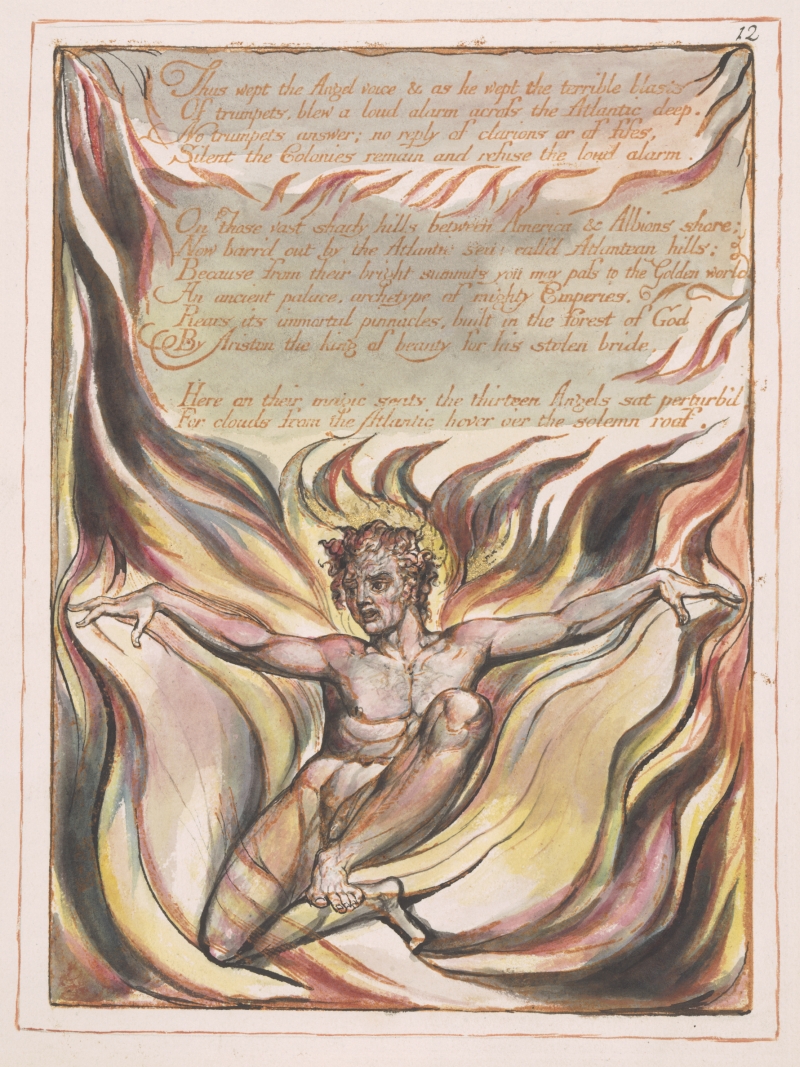 12
Thus wept the Angel voice & as he wept the terrible blasts
Of trumpets, blew a loud alarm across the Atlantic deep.
No trumpets answer; no reply of clarions or of fifes,
Silent the Colonies remain and refuse the loud alarm.
On those vast shady hills between America & Albions shore;
Now barr'd out by the Atlantic sea: call'd Atlantean hills:
Because from their bright summits you may pass to the Golden world
An ancient palace, archetype of mighty Emperies,
Rears its immortal pinnacles, built in the forest of God
By Ariston the king of beauty for his stolen bride,
Here on their magic seats the thirteen Angels sat perturb'd
For clouds from the Atlantic hover o'er the solemn roof.